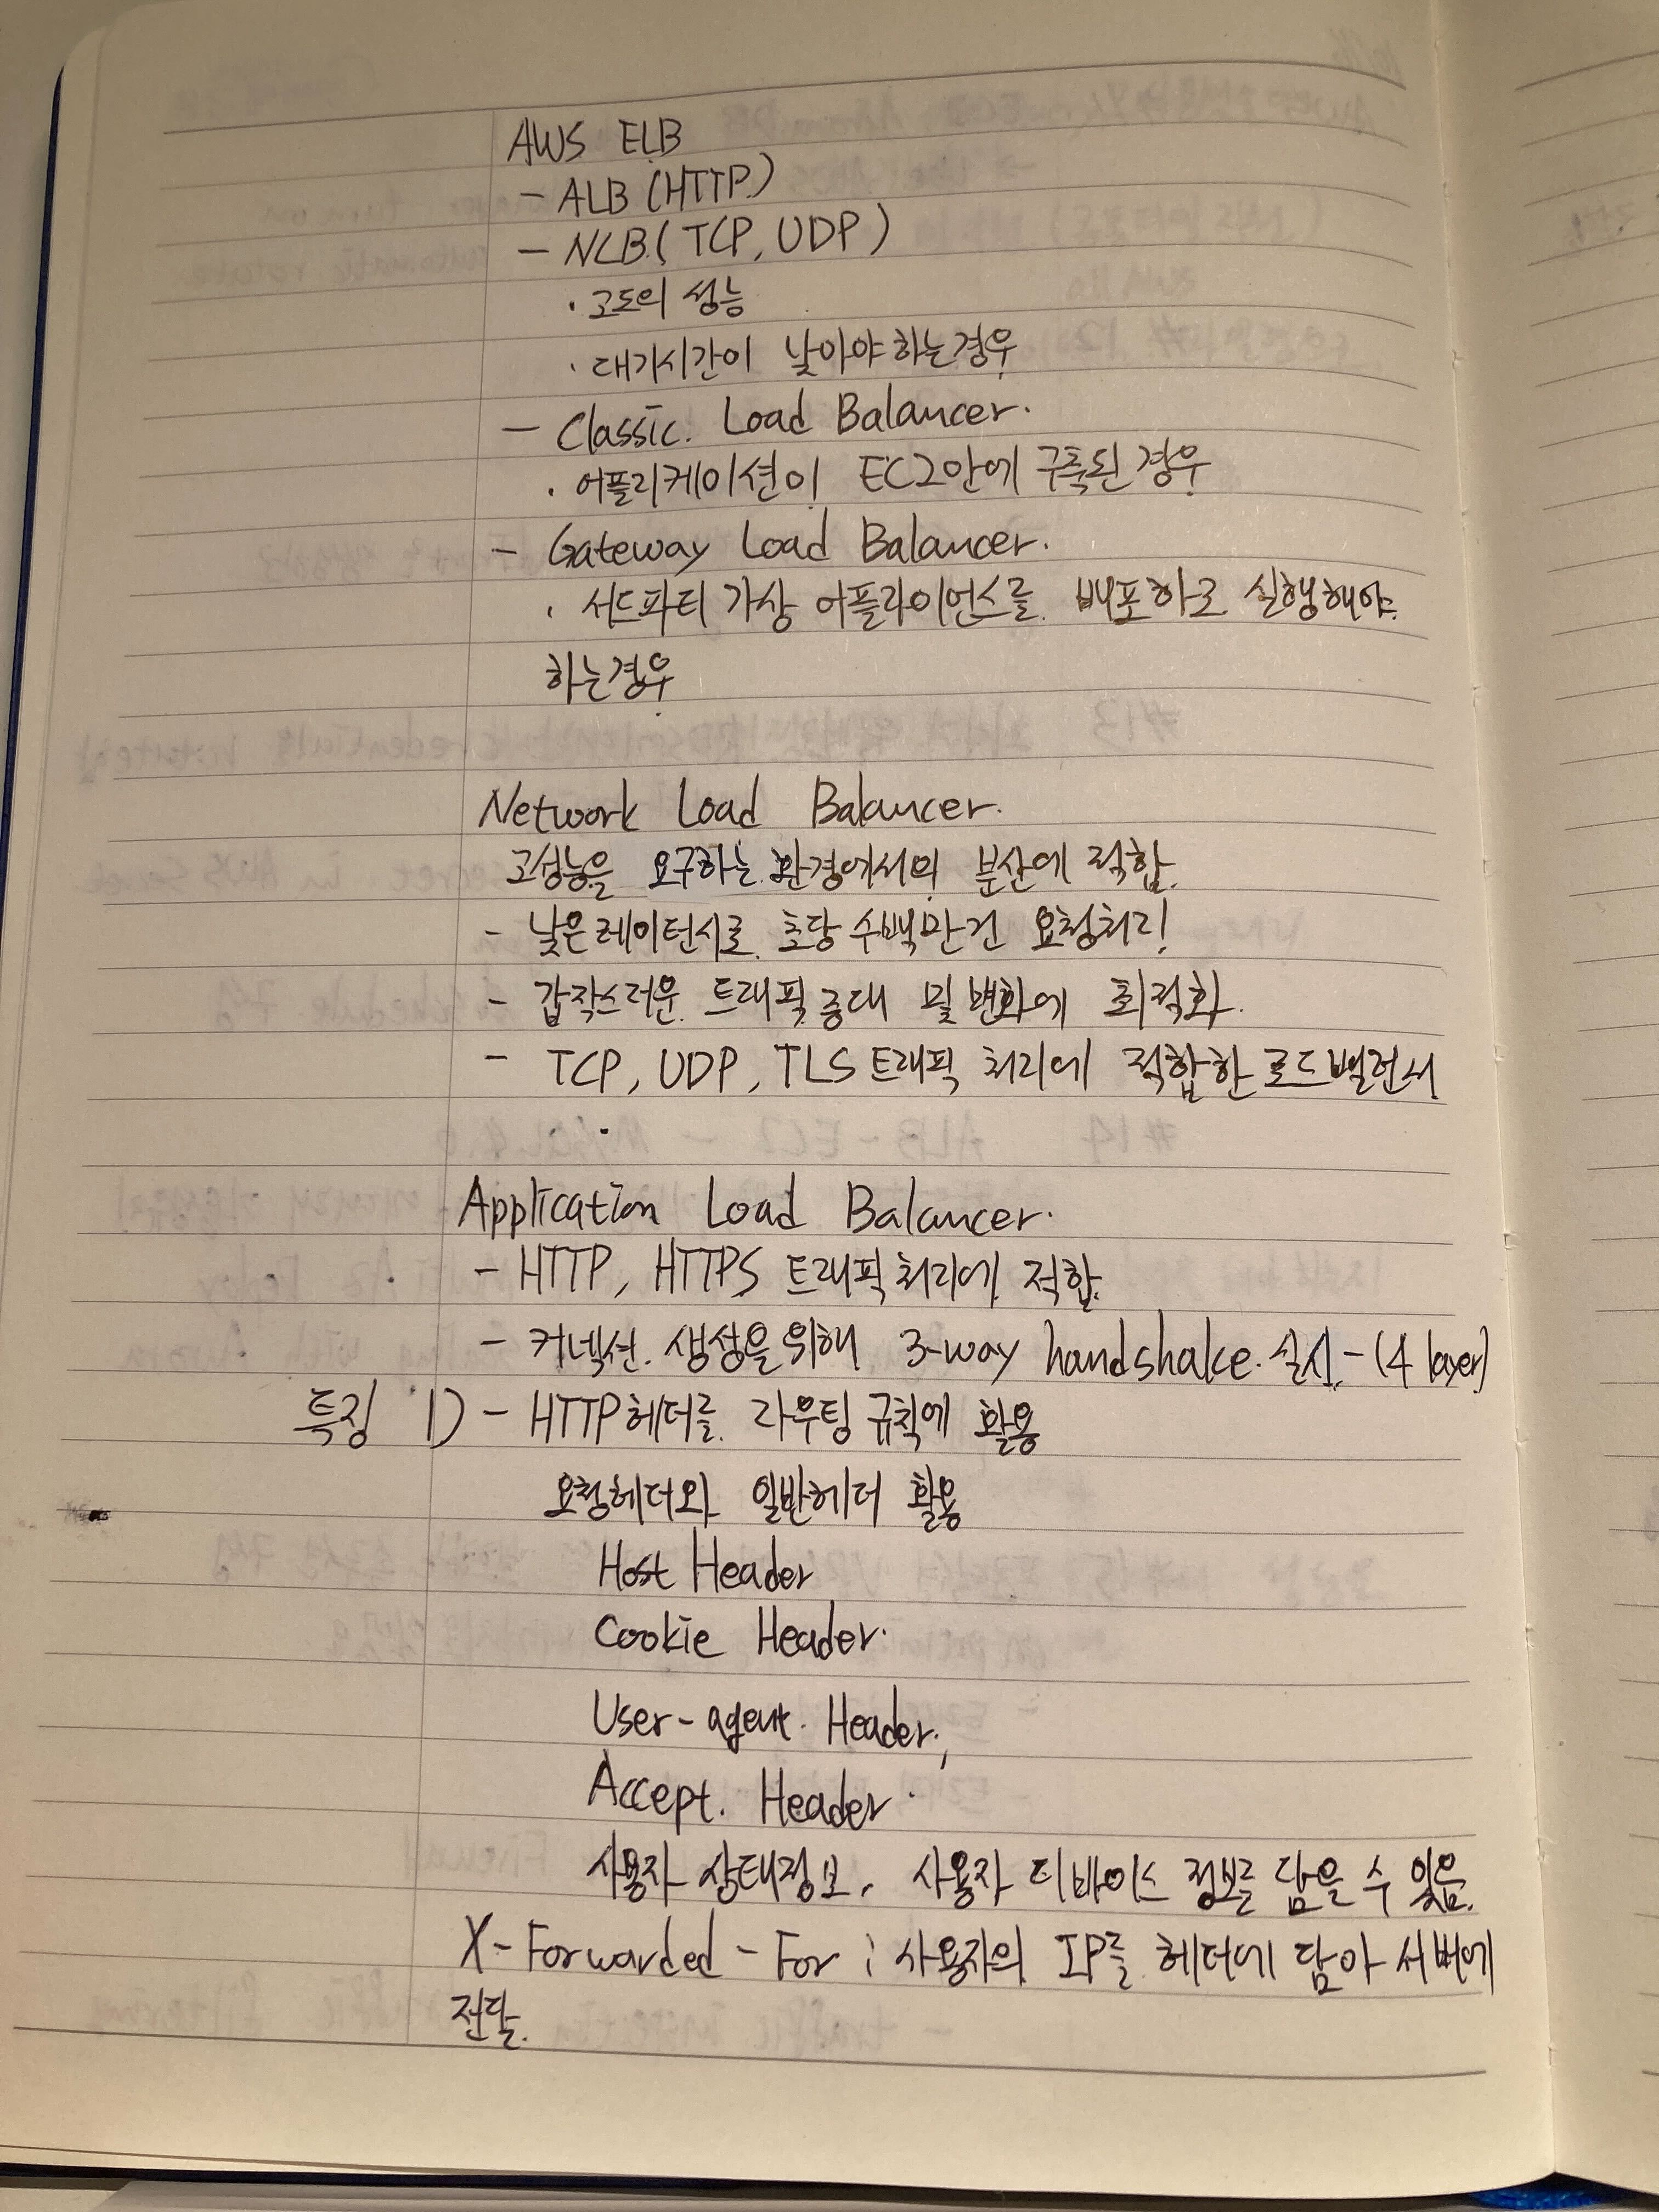 AWS ELB
- ALB (HTTP)
- NLB (TCP, UDP)
· 고도의 성능
· 대기시간이 낮아야하는경우
- Classic. Load Balancer.
· 어플리케이션이 EC2안에 구축된 경우
- Gateway Load Balancer.
· 서드파티 가상 어플라이언스를 배포하고 실행해야
하는경우
Network Load Balancer.
고성능을 요구하는 환경에서의 분산에 적합.
- 낮은 레이턴시로 초당 수백만건 요청처리!
- 갑작스러운 트래픽 증대 및 변화에 최적화.
- TCP, UDP, TLS 트래픽 처리에 적합한 로드밸런서
Application Load Balancer.
- HTTP, HTTPS 트래픽 처리에 적합.
- 커넥션 생성을 위해 3-way handshake. 실시. - (4 layer)
특징 1) - HTTP 헤더를 라우팅 규칙에 활용
요청헤더와 일반헤더 활용
Host Header
Cookie Header.
User-agent. Header,
Accept. Header.
사용자 상태정보, 사용자 디바이스 정보를 담을 수 있음.
X-Forwarded-For : 사용자의 IP를 헤더에 담아 서버에
전달.